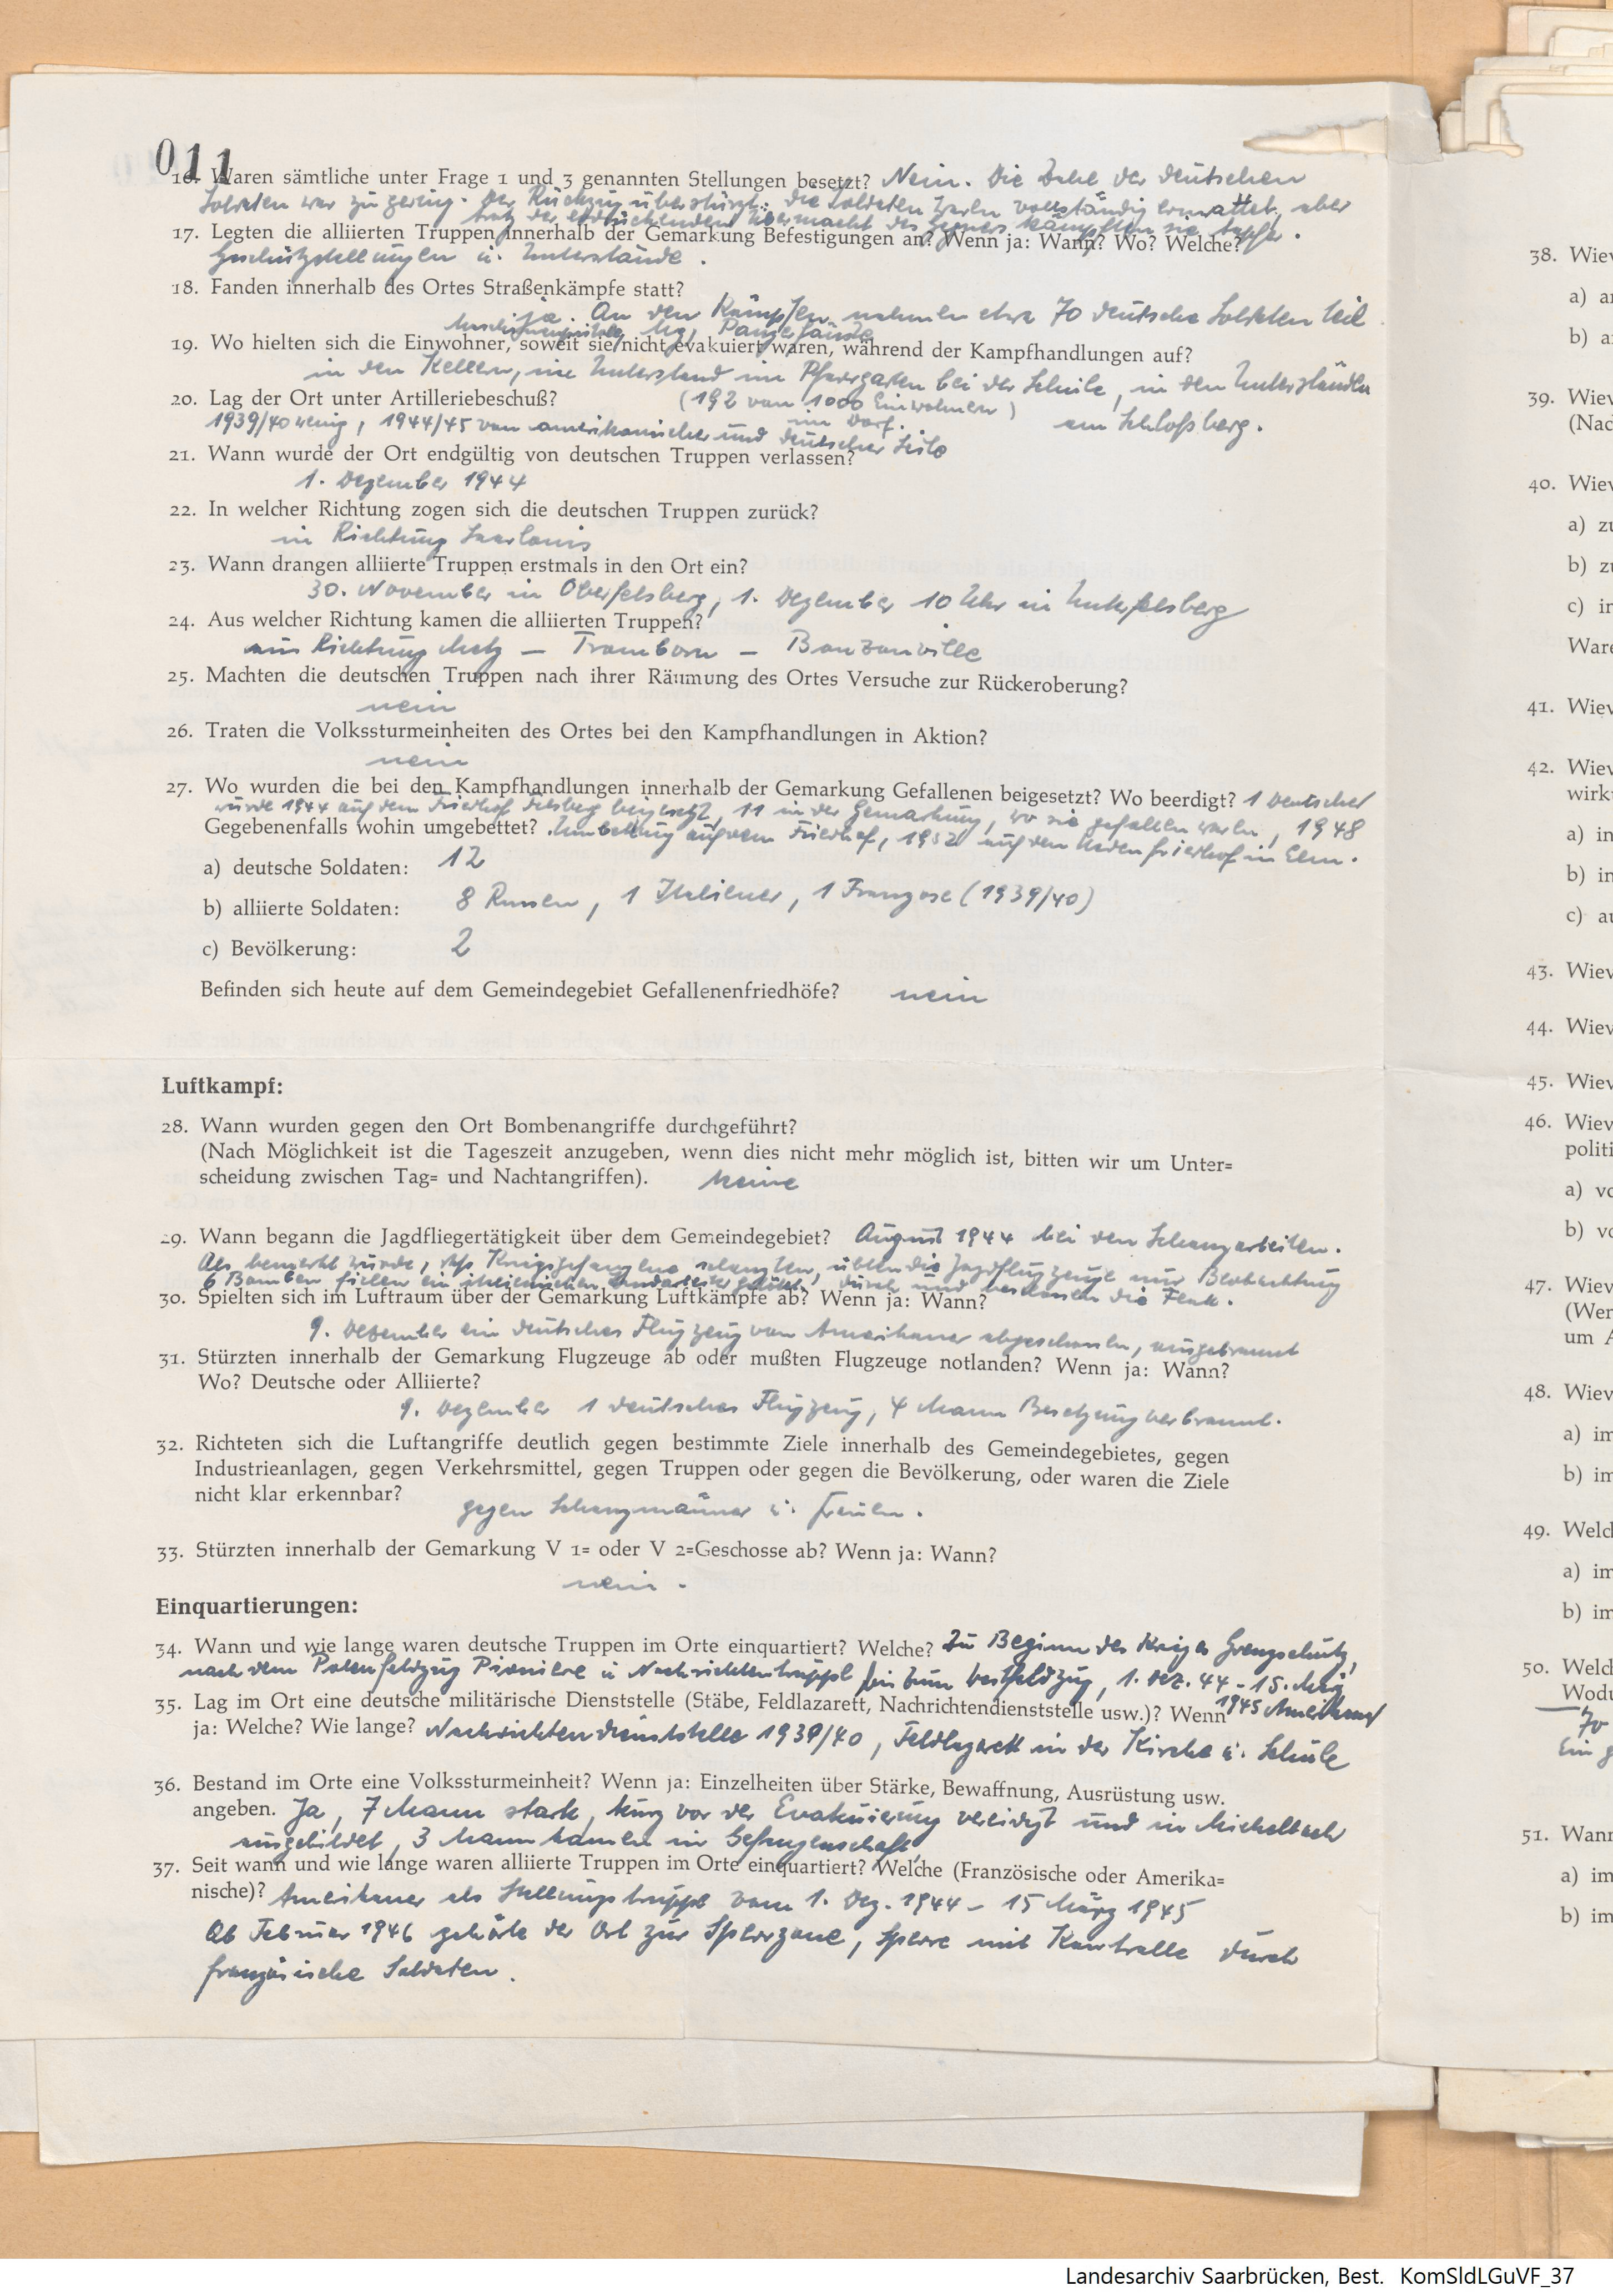 011
16. Waren sämtliche unter Frage 1 und 3 genannten Stellungen besetzt? Nein. Die Zahl der deutschen
Soldaten war zu gering. Der Rückzug überstürzt. Die Soldaten waren vollständig ermattet, aber
trotz der erdrückenden Übermacht des Gegners kämpften sie tapfer.
17. Legten die alliierten Truppen innerhalb der Gemarkung Befestigungen an? Wenn ja: Wann? Wo? Welche?
Geschützstellungen u. Unterstände.
18. Fanden innerhalb des Ortes Straßenkämpfe statt?
ja. An den Kämpfen nahmen etwa 70 deutsche Soldaten teil
Mg, Panzerfäuste
19. Wo hielten sich die Einwohner, soweit sie nicht evakuiert waren, während der Kampfhandlungen auf?
in den Kellern, im Unterstand im Pfarrgarten bei der Schule, in den Unterständen
20. Lag der Ort unter Artilleriebeschuß? (192 von 1000 Einwohnern) am Schloßberg.
im Dorf.
1939/40 wenig, 1944/45 von amerikanischer und deutscher Seite
21. Wann wurde der Ort endgültig von deutschen Truppen verlassen?
1. Dezember 1944
22. In welcher Richtung zogen sich die deutschen Truppen zurück?
in Richtung Saarlouis
23. Wann drangen alliierte Truppen erstmals in den Ort ein?
30. November in Oberfelsberg, 1. Dezember 10 Uhr in Unterfelsberg
24. Aus welcher Richtung kamen die alliierten Truppen?
aus Richtung Metz – Tromborn – Bouzonville
25. Machten die deutschen Truppen nach ihrer Räumung des Ortes Versuche zur Rückeroberung?
nein
26. Traten die Volkssturmeinheiten des Ortes bei den Kampfhandlungen in Aktion?
nein
27. Wo wurden die bei den Kampfhandlungen innerhalb der Gemarkung Gefallenen beigesetzt? Wo beerdigt? 1 Deutscher
wurde 1944 auf dem Friedhof Felsberg beigesetzt, 11 in der Gemarkung, wo sie gefallen waren, 1948
Gegebenenfalls wohin umgebettet? Umbettung auf dem Friedhof, 1952 auf den friedhof in Elm.
a) deutsche Soldaten: 12
b) alliierte Soldaten: 8 Russen, 1 Italiener, 1 Franzose (1939/40)
c) Bevölkerung: 2
Befinden sich heute auf dem Gemeindegebiet Gefallenenfriedhöfe? nein
Luftkampf:
28. Wann wurden gegen den Ort Bombenangriffe durchgeführt?
(Nach Möglichkeit ist die Tageszeit anzugeben, wenn dies nicht mehr möglich ist, bitten wir um Unter=
scheidung zwischen Tag= und Nachtangriffen). keine
29. Wann begann die Jagdfliegertätigkeit über dem Gemeindegebiet? August 1944 bei den Schanzarbeiten.
Als bemerkt wurde, daß Kriegsgefangene schanzten, übten die Jagdflugzeuge nur Beobachtung
6 Bomben fielen ein italienischer getötet. durch und beschossen die Flak.
30. Spielten sich im Luftraum über der Gemarkung Luftkämpfe ab? Wenn ja: Wann?
9. Dezember ein deutsches Flugzeug vom Amerikaner abgeschossen, ausgebrannt
31. Stürzten innerhalb der Gemarkung Flugzeuge ab oder mußten Flugzeuge notlanden? Wenn ja: Wann?
Wo? Deutsche oder Alliierte?
9. Dezember 1 deutsches Flugzeug, 4 Mann Besatzung verbrannt.
32. Richteten sich die Luftangriffe deutlich gegen bestimmte Ziele innerhalb des Gemeindegebietes, gegen
Industrieanlagen, gegen Verkehrsmittel, gegen Truppen oder gegen die Bevölkerung, oder waren die Ziele
nicht klar erkennbar?
gegen Schanzmänner u. frauen.
33. Stürzten innerhalb der Gemarkung V 1= oder V 2=Geschosse ab? Wenn ja: Wann?
nein.
Einquartierungen:
34. Wann und wie lange waren deutsche Truppen im Orte einquartiert? Welche? Zu Beginn des Krieges Grenzschutz,
nach dem Polenfeldzug Pioniere u Nachrichtentruppe bis zum Westfeldzug, 1. Dez. 44 - 15. März
1945 Amerikaner
35. Lag im Ort eine deutsche militärische Dienststelle (Stäbe, Feldlazarett, Nachrichtendienststelle usw.)? Wenn
ja: Welche? Wie lange? Nachrichtendienststelle 1939/40, Feldlazarett in der Kirche u. Schule
36. Bestand im Orte eine Volkssturmeinheit? Wenn ja: Einzelheiten über Stärke, Bewaffnung, Ausrüstung usw.
angeben. Ja, 7 Mann stark, kurz vor der Evakuierung vereidigt und in Michelbach
ausgebildet, 3 Mann kamen in Gefangenschaft
37. Seit wann und wie lange waren alliierte Truppen im Orte einquartiert? Welche (Französische oder Amerika=
nische)? Amerikaner als Stellungstruppe vom 1. Dez. 1944 – 15 März 1945
Ab Februar 1946 gehörte der Ort zur Sperrzone, Sperre mit Kontrolle durch
französische Soldaten.
38. Wiev
a) a
b) a
39. Wiev
(Nac
40. Wiev
a) zu
b) zu
c) in
Ware
41. Wiev
42. Wiev
wirk
a) in
b) in
c) au
43. Wiev
44. Wiev
45. Wiev
46. Wiev
politi
a) vo
b) vo
47. Wiev
(Wer
um A
48. Wiev
a) im
b) im
49. Welc
a) im
b) im
50. Welc
Wodu
70
Ein g
51. Wann
a) im
b) im
Landesarchiv Saarbrücken, Best. KomSldLGuVF_37